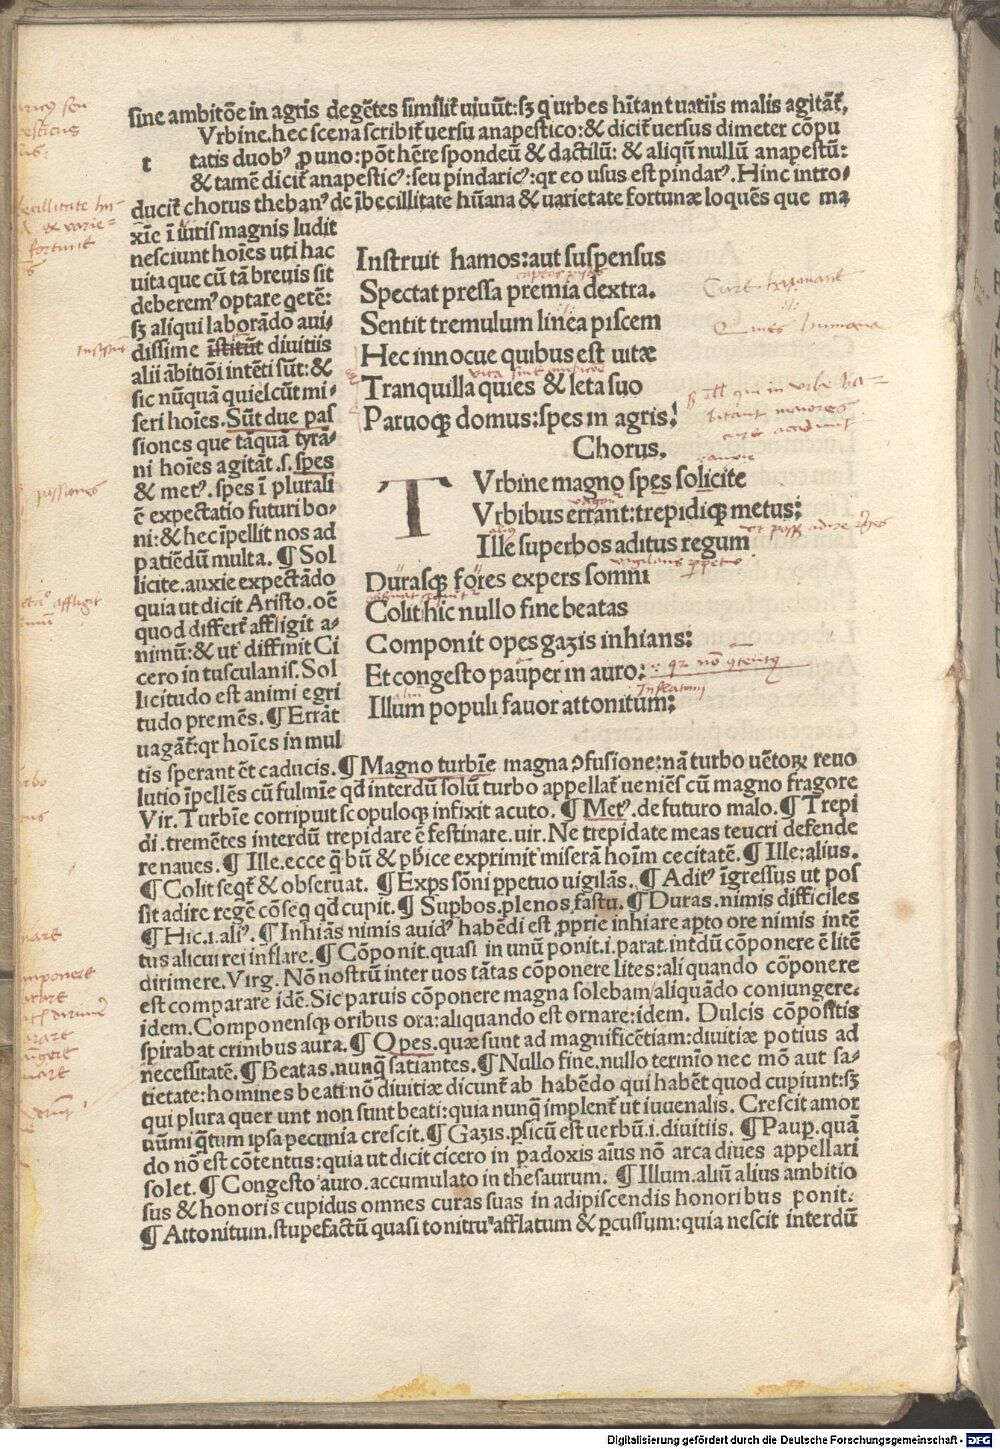 sine ambitōe in agris degētes similit̄ uiuūt:sʒ q̄ urbes hītant uariis malis agitāt̄,
Vrbine.hec scena scribit̄ uersu anapestico:& dicit̄ uersus dimeter cōpu
t
tatis duobꝰ ꝓ uno:pōt hēre spondeū & dactilū: & aliqñ nullū anapestū:
& tamē dicit̄ anapesticꝰ:seu pindaricꝰ:qr eo usus est pindarꝰ.Hinc intro-
ducit̄ chorus thebanꝰ de ībecillitate hūana & uarietate fortunæ loquēs que ma
xīe ī iuris magnis ludit
nesciunt hoīes uti hac
uita que cū tā breuis sit
deberemꝰ optare qetē:
sʒ aliqui laborādo aui-
dissime īstitūt diuitiis
alii ābitiōi intēti sūt:&
sic nūquā quiescūt mi-
seri hoīes.Sūt due pas
siones que tāquā tyrā-
ni hoīes agitāt.s.spes
& metꝰ.spes ī plurali
ē expectatio futuri bo-
ni:& hec īpellit nos ad
patiēdū multa. ¶ Sol
licite.auxie expectādo
quia ut dicit Aristo.oē
quod differt̄ affligit a-
nimū:& ut diffinit Ci
cero in tusculanis. Sol
licitudo est animi egri
tudo premēs. ¶ Errāt
uagāt̄:qr hoīes in mul
Instruit hamos:aut suspensus
Spectat pressa premia dextra.
Sentit tremulum linea piscem
Hec innocue quibus est uitæ
Tranquilla quies & leta suo
Paruoqꝫ domus:spes in agris!
Chorus.
T Vrbine magno spes solicite
Vrbibus errant:trepidiqꝫ metus;
Ille superbos aditus regum
Durasqꝫ fores expers somni
Colit hic nullo fine beatas
Componit opes gazis inhians:
Et congesto pauper in auro:
Illum populi fauor attonitum;
tis sperant ēt caducis. ¶ Magno turbīe magna ↄfusione:nā turbo uētoꝝ reuo
lutio īpellēs cū fulmīe qd interdū solū turbo appellat̄ ueniēs cū magno fragore
Vir.Turbīe corripuit scopuloqꝫ infixit acuto. ¶ Metꝰ.de futuro malo. ¶ Trepi
di.tremētes interdū trepidare ē festinare.uir. Ne trepidate meas teucri defende
re naues. ¶ Ille.ecce q̄ bñ & pbīce exprimit miserā hoīm cecitatē. ¶ Ille:alius.
¶ Colit seqt̄ & obseruat. ¶ Exps sōni ppetuo uigilās. ¶ Aditꝰ īgressus ut pos
sit adire regē cōseq qd cupit. ¶ Supbos.plenos fastu. ¶ Duras.nimis difficiles
¶ Hic.i.aliꝰ. ¶ Inhiās nimis auidꝰ habēdi est ꝓprie inhiare apto ore nimis intē
tus alicui rei inflare. ¶ Cōponit.quasi in unū ponit.i.parat.intdū cōponere ē litē
dirimere.Virg. Nō nostrū inter uos tātas cōponere lites:ali quando cōponere
est comparare idē.Sic paruis cōponere magna solebam/aliquādo coniungere.
idem.Componensqꝫ oribus ora:aliquando est ornare:idem. Dulcis cōpositis
spirabat crinibus aura. ¶ Opes.quæ sunt ad magnificētiam:diuitiæ potius ad
necessitatē. ¶ Beatas.nunq̄ satiantes. ¶ Nullo fine.nullo termīo nec mō aut sa-
tietate:homines beati nō diuitiæ dicunt̄ ab habēdo qui habēt quod cupiunt:sʒ
qui plura querunt non sunt beati:quia nunq̄ implent̄ ut iuuenalis. Crescit amor
nūmi q̄tum ipsa pecunia crescit. ¶ Gazis.ꝑsicū est uerbū.i.diuitiis. ¶ Paupꝑ.quā
do nō est cōtentus:quia ut dicit cicero in paradoxis aīus nō arca diues appellari
solet. ¶ Congesto auro.accumulato in thesaurum. ¶ Illum.aliū alius ambitio
sus & honoris cupidus omnes curas suas in adipiscendis honoribus ponit.
¶ Attonitum.stupefactū quasi tonitru afflatum & ꝑcussum:quia nescit interdū
Digitalisierung gefördert durch die Deutsche Forschungsgemeinschaft - DFG